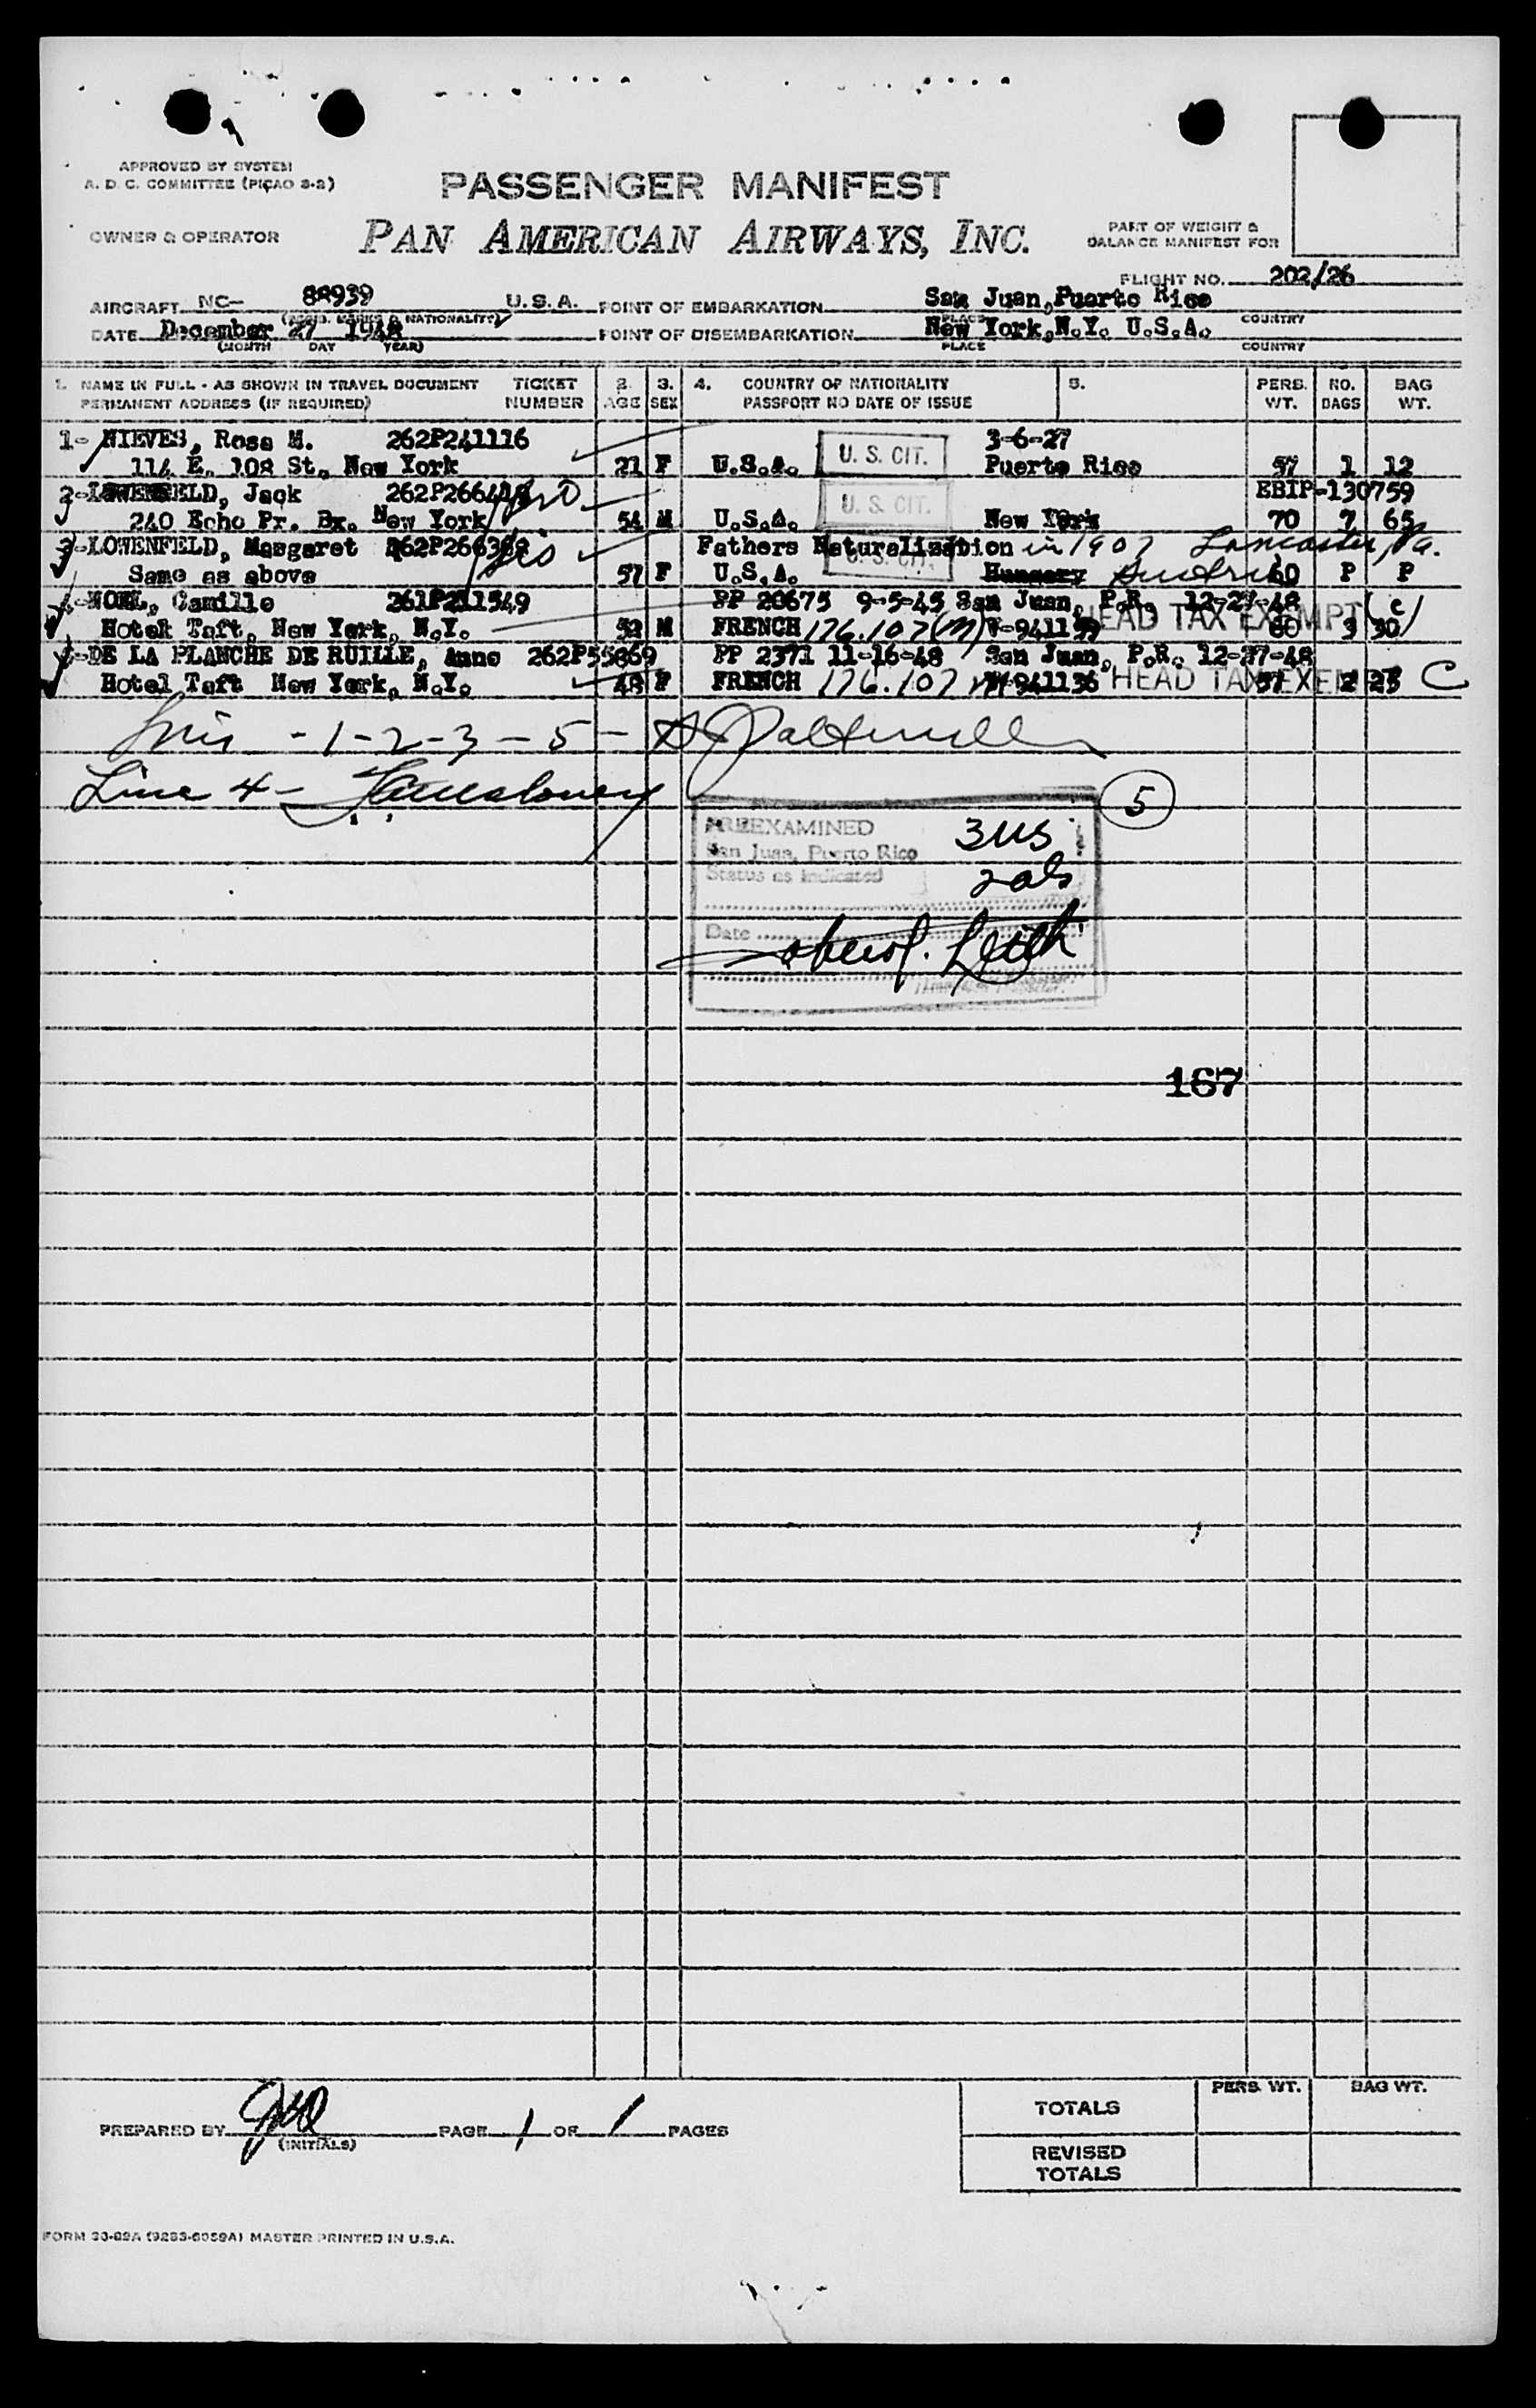 APPROVED BY SYSTEM
A. D. C. COMMITTEE (PICAO 3-2)
PASSENGER MANIFEST
OWNER & OPERATOR
PAN AMERICAN AIRWAYS, INC.
PART OF WEIGHT &
BALANCE MANIFEST FOR
FLIGHT NO. 202/26
AIRCRAFT NC- 88939 U.S.A. POINT OF EMBARKATION San Juan, Puerto Rico
(REGIS. MARKS & NATIONALITY) PLACE COUNTRY
DATE December 27 1948 POINT OF DISEMBARKATION New York, N.Y. U.S.A.
(MONTH DAY YEAR) PLACE COUNTRY
1. NAME IN FULL - AS SHOWN IN TRAVEL DOCUMENT TICKET 2. 3. 4. COUNTRY OF NATIONALITY 5. PERS. NO. BAG
PERMANENT ADDRESS (IF REQUIRED) NUMBER AGE SEX PASSPORT NO DATE OF ISSUE WT. BAGS WT.
1- NIEVES, Rosa M. 262P241116 3-6-27
114 E. 108 St. New York 21 F U.S.A. U. S. CIT. Puerto Rico 57 1 12
2- LOWENFELD, Jack EBIP-130759
240 Echo Pr. Bx. New York 54 M U.S.A. U. S. CIT. New York 70 7 65
3- LOWENFELD, Margaret Fathers Naturalization in 1907 Lancaster, Pa.
Same as above 57 F U.S.A. U. S. CIT. Hungary 60 P P
4- NOEL, Camille 261P211549 PP 20675 9-5-45 San Juan, P.R. 12-27-48
Hotel Taft, New York, N.Y. 52 M FRENCH 176.107(M) HEAD TAX EXEMPT 60 3 30 C
5- DE LA PLANCHE DE RUILLE, Anne 262P55869 PP 2371 11-16-48 San Juan, P.R. 12-27-48
Hotel Taft New York, N.Y. 48 F FRENCH 176.107 V-941136 HEAD TAX EXEMPT 57 2 23 C
- 1-2-3-5-
Line 4-
5
PREEXAMINED 3 US
San Juan, Puerto Rico
Status as indicated
Date
167
PREPARED BY PAGE 1 OF 1 PAGES
(INITIALS)
PERS. WT. BAG WT.
TOTALS
REVISED
TOTALS
FORM 30-89A (9283-6059A) MASTER PRINTED IN U.S.A.